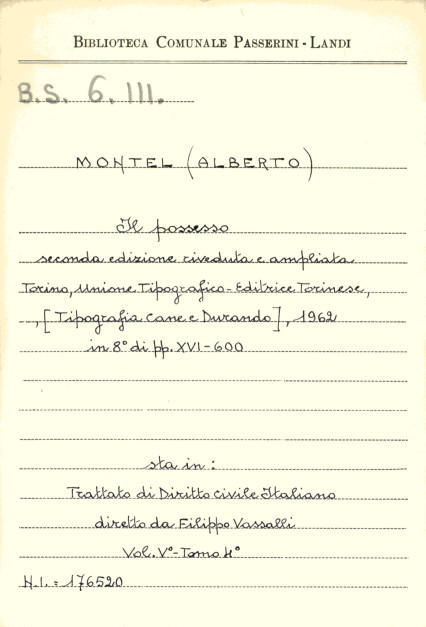 BIBLIOTECA COMUNALE PASSERINI - LANDI
B.S. 6. III.
MONTEL (ALBERTO)
Il possesso
seconda edizione riveduta e ampliata
Torino, Unione Tipografico-Editrice Torinese,
, [Tipografia Cane e Durando], 1962
in 8° di pp. XVI-600
sta in:
Trattato di Diritto Civile Italiano
diretto da Filippo Vassalli
Vol. V°-Tomo 4°
N.I. = 176520